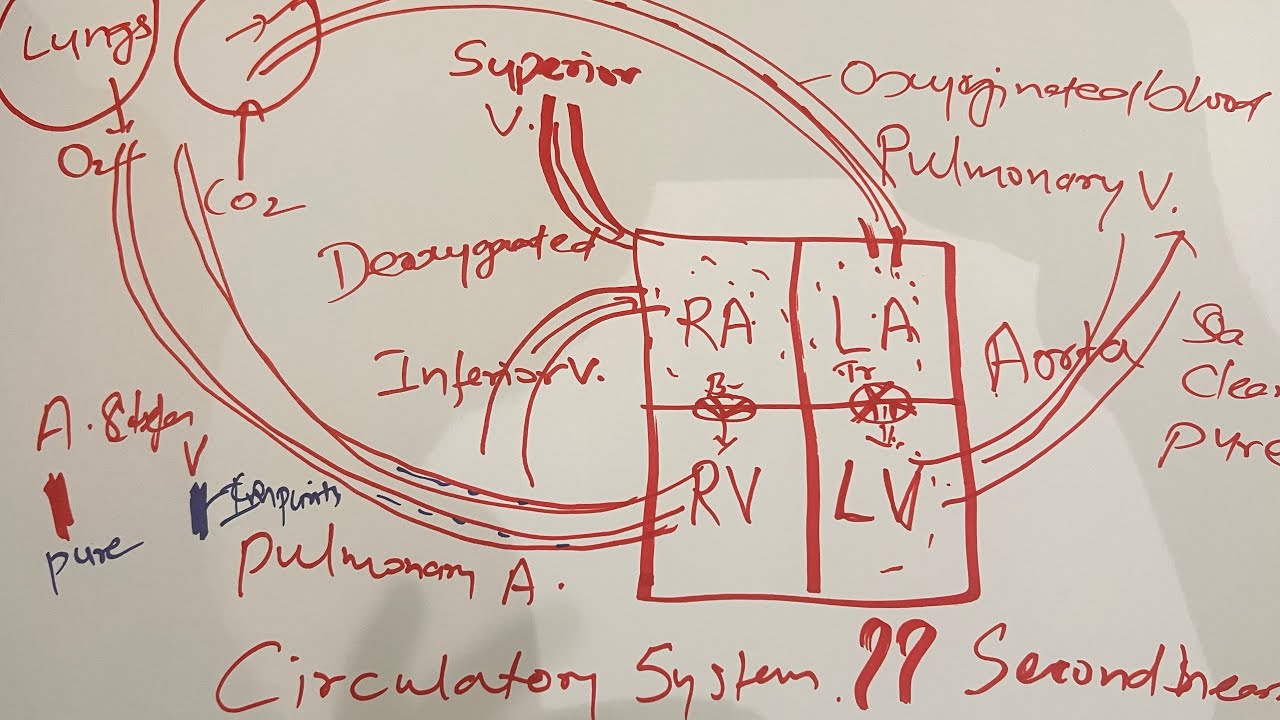 Lungs
O2
CO2
Superior
V.
Oxyginated blood
Pulmonary V.
Deoxygnated
RA
LA
Inferior V.
B-
Tr
Aorta
Clea
pure
A.
V
RV
LV
pure
Pulmonary A.
Circulatory System ?? Second hear